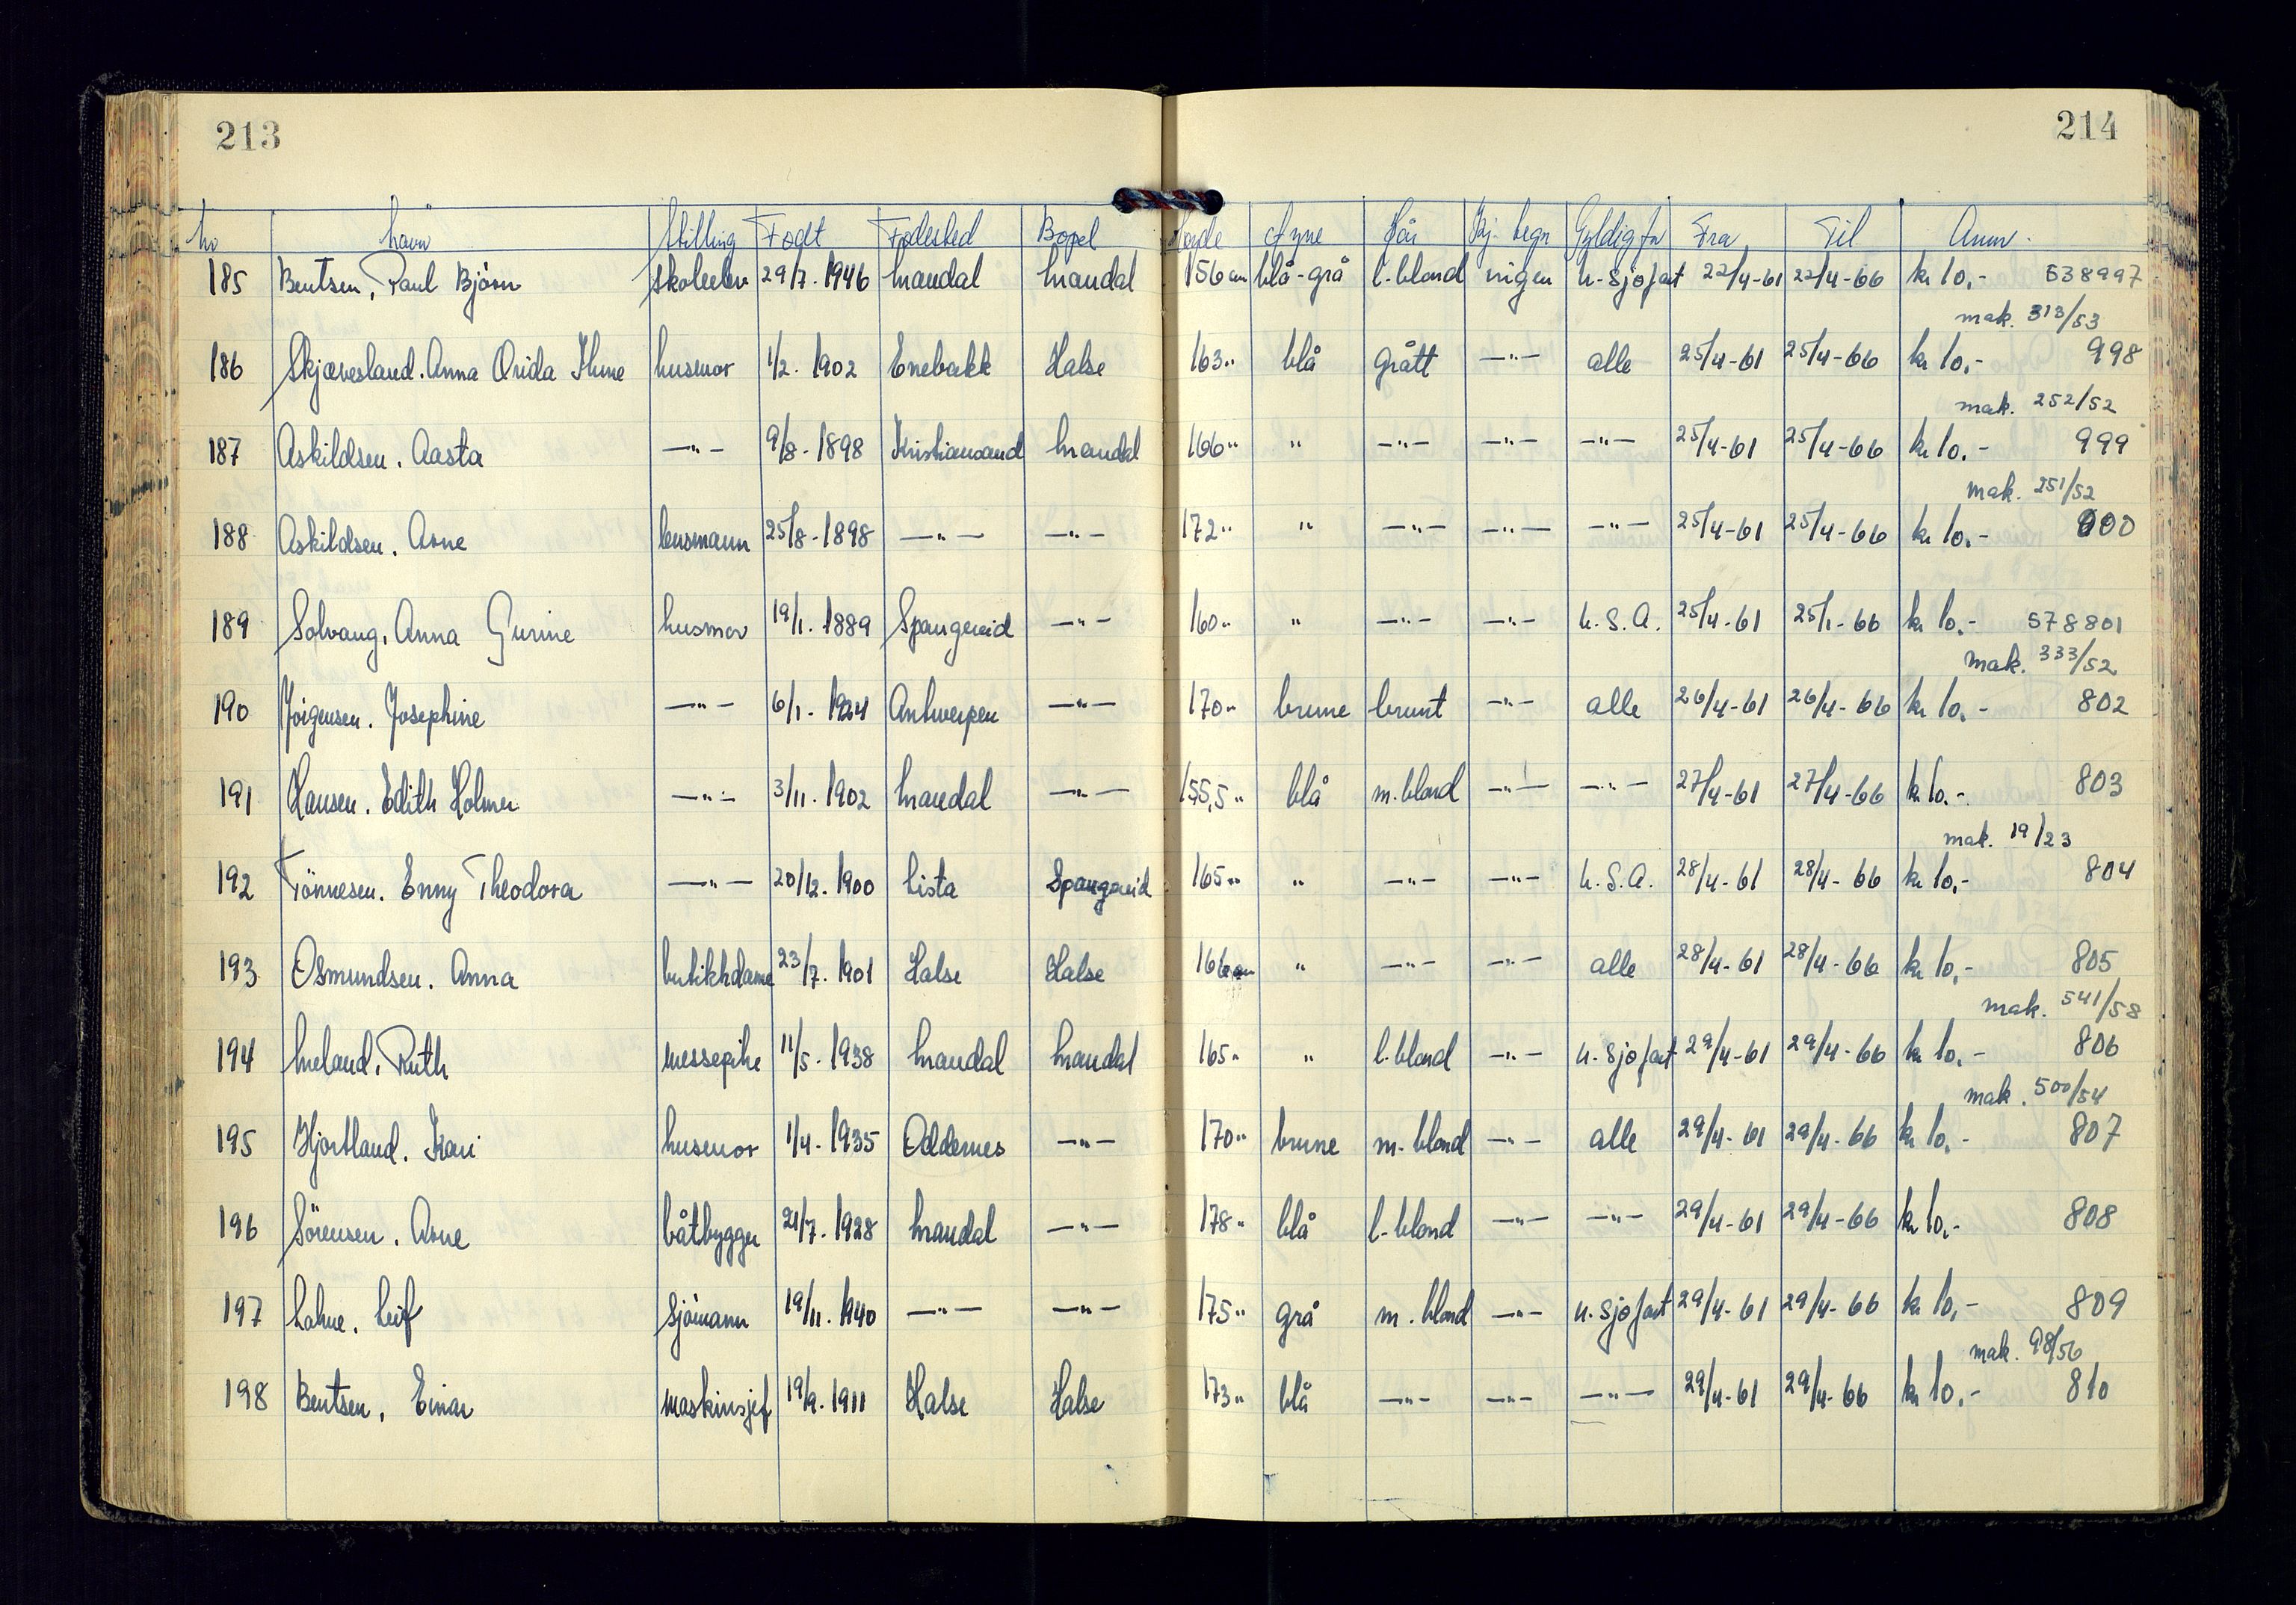 213
214
Nr Navn Stilling Født Fødested Bopel Høyde Øyne Hår Kj. tegn Gyldig for Fra Til Anm.
185 Bentsen, Paul Bjørn skoleelev 29/7. 1946 Mandal Mandal 156 cm blå-grå l. blond ingen u. sjøfart 22/4-61 22/4-66 kr 10.- 538997
mak. 313/53
186 Skjævesland. Anna husmor 1/2. 1902 Enebakk Halse 163 " blå grått —"— alle 25/4-61 25/4-66 kr 10.- 998
mak. 252/52
187 Askildsen. Aasta —"— 9/8-1898 Kristiansand Mandal 166 " " —"— —"— —"— 25/4-61 25/4-66 kr 10.- 999
mak. 251/52
188 Askildsen. Arne busmann 25/8-1898 —"— —"— 172 " " —"— —"— —"— 25/4-61 25/4-66 kr 10.- 800
189 Solvang, Anna Gurine husmor 19/1. 1889 Spangereid —"— 160 " " —"— —"— U.S.A. 25/4-61 25/1-66 kr 10.- 578801
mak. 333/52
190 Jörgensen. Josephine —"— 6/1. 1924 Antwerpen —"— 170 " brune brunt —"— alle 26/4-61 26/4-66 kr 10.- 802
191 Hansen. Edith Holmer —"— 3/11. 1902 Mandal —"— 155,5 " blå m. blond —"— —"— 27/4-61 27/4-66 kr 10.- 803
mak. 19/23
192 Tönnesen. Enny Theodora —"— 20/12. 1900 Lista Spangereid 165 " " —"— —"— U.S.A. 28/4-61 28/4-66 kr 10.- 804
193 Osmundsen. Anna butikkdame 23/7. 1901 Halse Halse 166 cm " —"— —"— alle 28/4-61 28/4-66 kr 10.- 805
mak. 541/58
194 Meland, Ruth messepike 11/5. 1938 Mandal Mandal 165 " " l. blond —"— u. sjøfart 29/4-61 29/4-66 kr 10.- 806
mak. 500/54
195 Hjortland. Kari husmor 1/4. 1935 Oddernes —"— 170 " brune m. blond —"— alle 29/4-61 29/4-66 kr 10.- 807
196 Sörensen. Arne båtbygger 21/7. 1928 Mandal —"— 178 " blå l. blond —"— —"— 29/4-61 29/4-66 kr 10.- 808
197 Lohne. Leif sjömann 19/11. 1940 —"— —"— 175 " grå m. blond —"— u. sjøfart 29/4-61 29/4-66 kr 10.- 809
mak. 98/56
198 Bentsen, Einar maskinsjef 19/9. 1911 Halse Halse 173 " blå —"— —"— —"— 29/4-61 29/4-66 kr 10.- 810